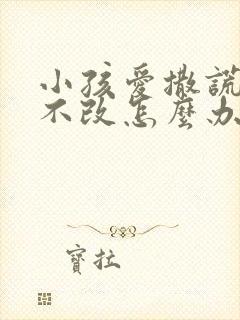 小孩愛撒謊
不改怎麼办
寶拉